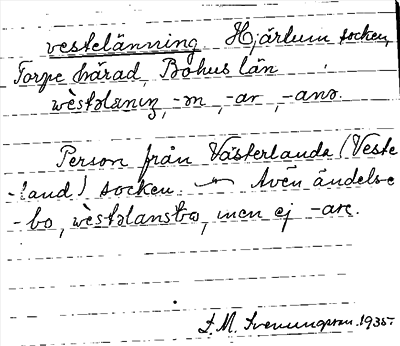 vestelänning Hjärtum socken,
Torpe härad, Bohus län
wèstəlæniŋ, -ən, -ar, -anə.
Person från Västerlanda (Veste
-land) socken. — Även ändelse
-bo, wèstəlansbo, men ej -are.
F. M. Svenungsson. 1935.